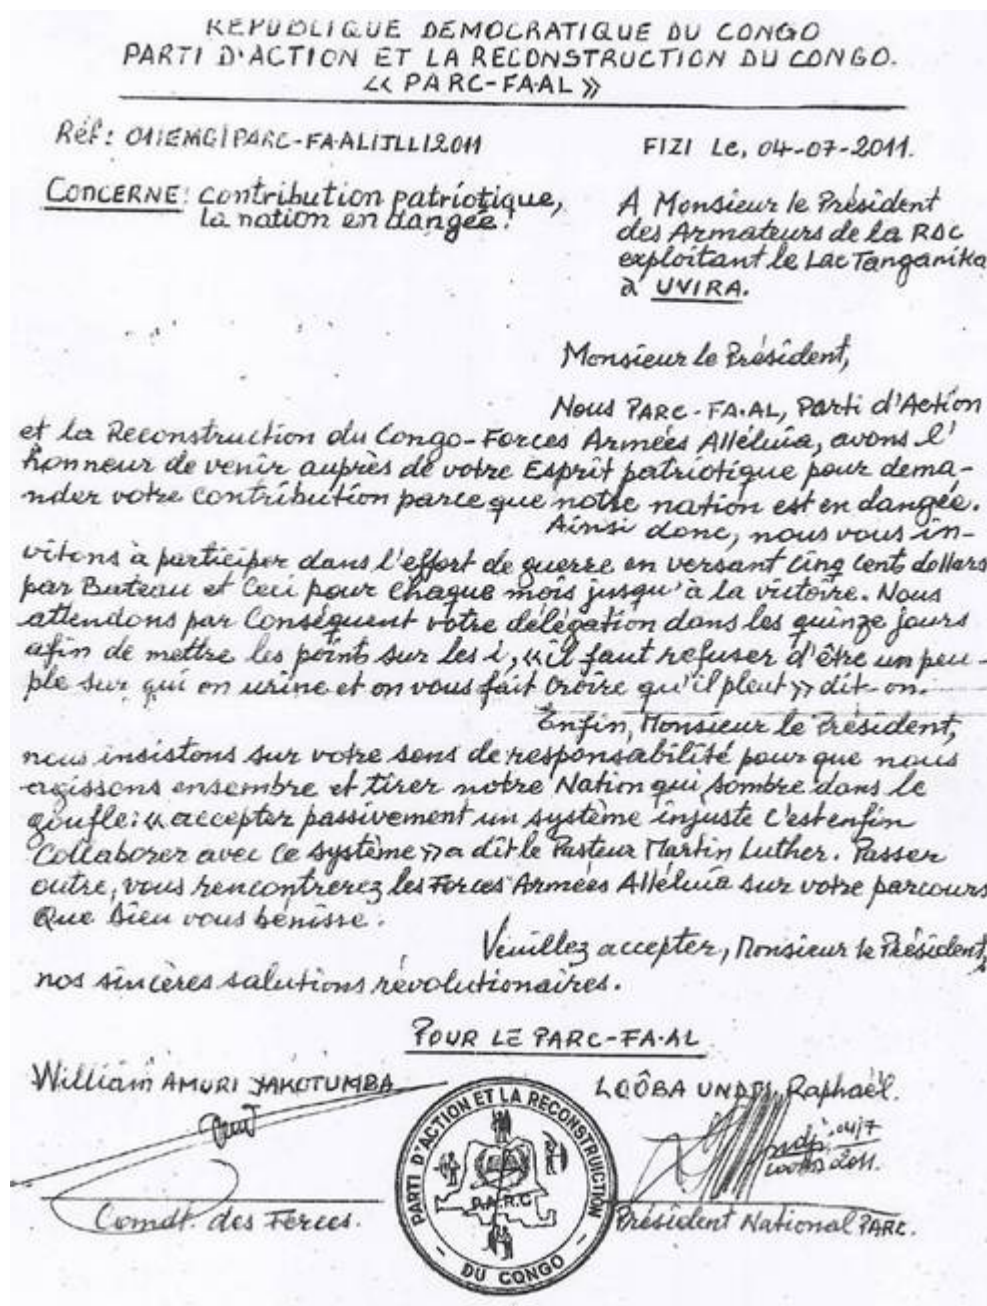 REPUBLIQUE DEMOCRATIQUE DU CONGO
PARTI D'ACTION ET LA RECONSTRUCTION DU CONGO.
<< PARC-FA.AL >>
Réf: 011EMG/PARC-FA-AL/TLL/2011
FIZI Le, 04-07-2011.
CONCERNE: contribution patriotique,
la nation en dangée.
A Monsieur le Président
des Armateurs de la RDC
exploitant le Lac Tanganika
à UVIRA.
Monsieur le Président,
Nous PARC-FA.AL, Parti d'Action
et la Reconstruction du Congo-Forces Armées Alléluia, avons l'
honneur de venir auprès de votre Esprit patriotique pour dema-
nder votre contribution parce que notre nation est en dangée.
Ainsi donc, nous vous in-
vitons à participer dans l'effort de guerre en versant Cinq Cents dollars
par Bateau et Ceci pour Chaque mois jusqu'à la victoire. Nous
attendons par Conséquent votre délégation dans les quinze jours
afin de mettre les points sur les i, << il faut refuser d'être un peu-
ple sur qui on urine et on vous fait croire qu'il pleut >> dit-on.
Enfin, Monsieur le Président,
nous insistons sur votre sens de responsabilité pour que nous
agissons ensembre et tirer notre Nation qui sombre dans le
goufle: << accepter passivement un système injuste c'est enfin
Collaborer avec ce système >> a dit le Pasteur Martin Luther. Passer
outre, vous rencontrerez les Forces Armées Alléluia sur votre parcours
Que Dieu vous bénisse.
Veuillez accepter, Monsieur le Président,
nos sincères salutions révolutionaires.
POUR LE PARC-FA.AL
William AMURI YAKOTUMBA
LOÔBA UNDJI, Raphaël.
04/7
2011.
Comdt. des Forces.
Président National PARC.
PARTI D'ACTION ET LA RECONSTRUICTION
P.A.R.C
- DU CONGO -